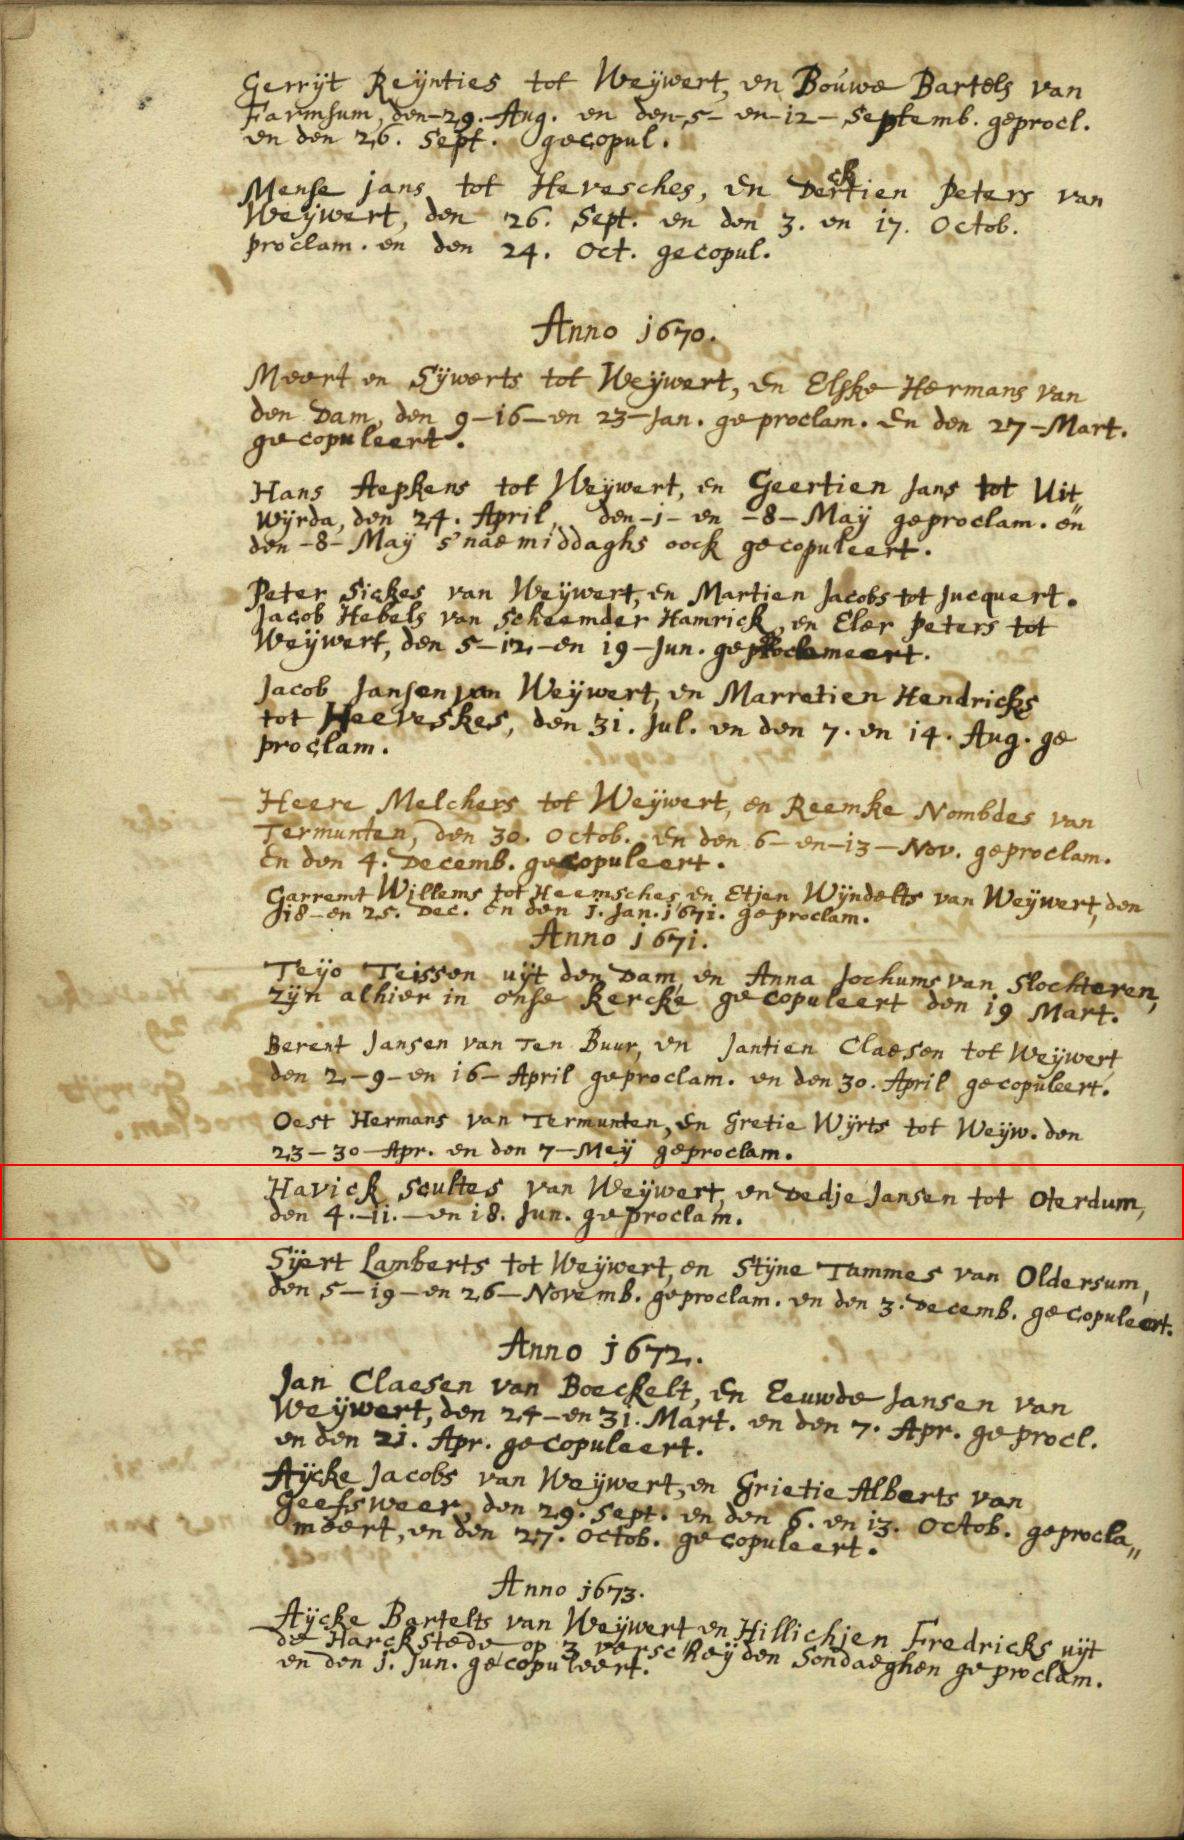 Gerrijt Reijnties tot Weijwert, en Bouwe Bartels van
Farmsum, den-29.-Aug. en den-5- en-12- Septemb. geprocl.
en den 26. Sept. gecopul.
Mense jans tot Hevesches, En Dertien Peters van
ck
Weijwert, den 26. Sept. en den 3. en 17. Octob.
proclam. en den 24. Oct. gecopul.
Anno 1670.
Meert en Sijwerts tot Weijwert, En Elske Hermans van
den Dam, den 9-16-en 23-Jan. geproclam. En den 27-Mart.
gecopuleert.
Hans Aepkens tot Weijwert, en Geertien Jans tot Uit„
wijrda, den 24. April, den-1- en -8- Maij geproclam. en
den -8- Maij s'naemiddaghs oock gecopuleert.
Peter Sickes van Weijwert, en Martien Jacobs tot Jucquert.
Jacob Hebels van Scheemder Hamrick, en Elær Peters tot
Weijwert, den 5-12-en 19-Jun. geproclameert.
Jacob Jansen van Weijwert, en Marretien Hendricks
tot Heeveskes, den 31. Jul. en den 7. en 14. Aug. ge
proclam.
Heere Melchers tot Weijwert, en Reemke Nombdes van
Termunten, den 30. Octob. En den 6- en-13-Nov. geproclam.
En den 4. Decemb. gecopuleert.
Garremt Willems tot Heemsches, en Etjen Wijndelts van Weijwert, den
18-en 25. Dec. en den 1. Jan. 1671. geproclam.
Anno 1671.
Teijo Teissen uijt den Dam, en Anna Jochums van Slochteren,
zijn alhier in onse kercke gecopuleert den 19 Mart.
Berent Jansen van Ten Buur, en Jantien Claesen tot Weijwert
den 2-9-en 16-April geproclam. en den 30. April gecopuleert.
Oest Hermans van Termunten, En Gretie Wijrts tot Weijw. den
23-30-Apr. en den 7-Meij geproclam.
Havick Scultes van Weijwert, en Dedje Jansen tot Oterdum,
den 4.-11.-en 18. Jun. geproclam.
Sijert Lamberts tot Weijwert, en Stijne Tammes van Oldersum,
den 5-19-en 26-Novemb. geproclam. en den 3. Decemb. gecopuleert.
Anno 1672.
Jan Claesen van Boeckelt, En Eeuwde Jansen van
Weijwert, den 24-en 31. Mart. en den 7. Apr. geprocl.
en den 21. Apr. gecopuleert.
Aijcke Jacobs van Weijwert, en Grietie Alberts van
Geefsweer, den 29. Sept. en den 6. en 13. Octob. geprocla„
meert, en den 27. Octob. gecopuleert.
Anno 1673.
Aijcke Bartelts van Weijwert en Hillichien Fredricks uijt
de Harckstede op 3 verscheijden Sondaeghen geproclam.
en den 1. Jun. gecopuleert.